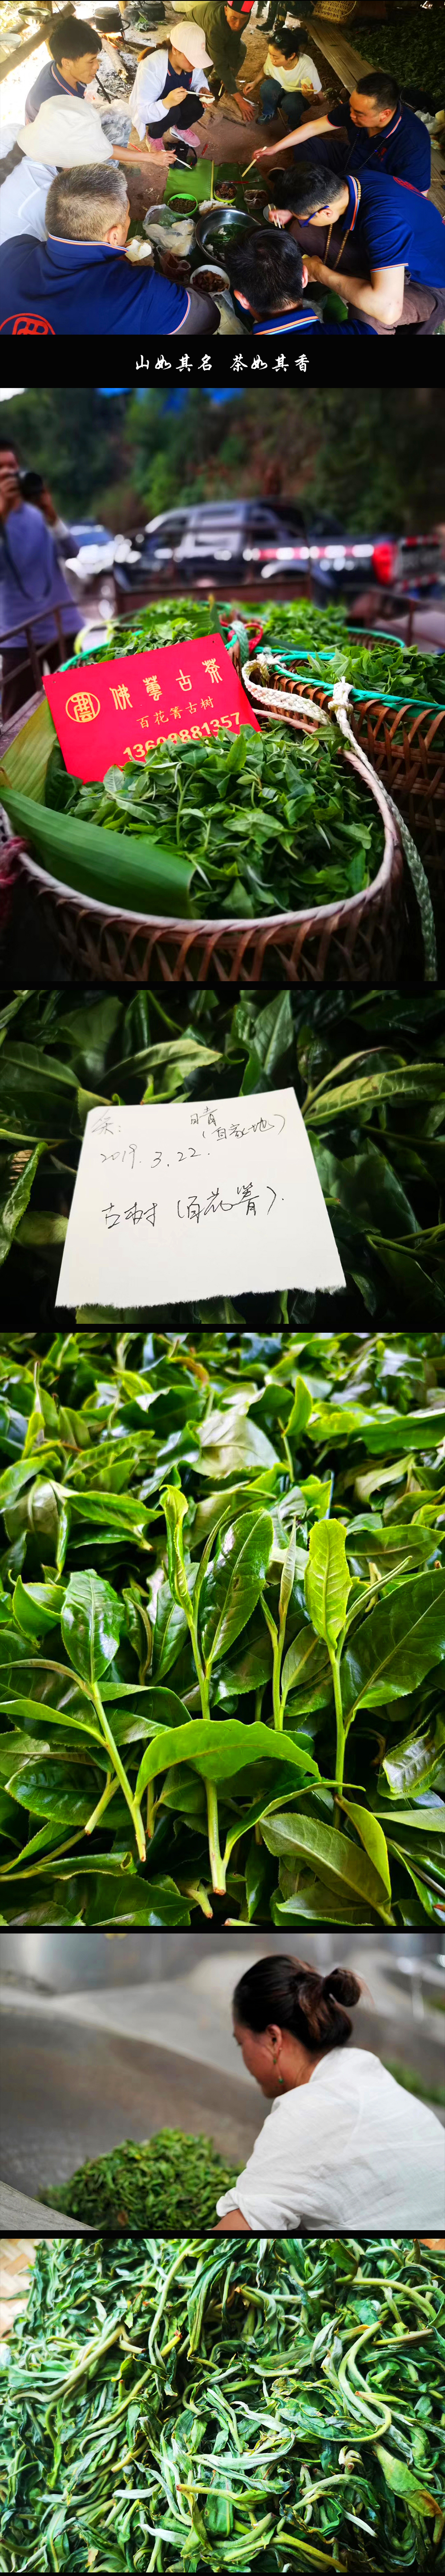 山如其名 茶如其香
佛薹古茶
百花箐古树
13608881357
晴
2019.3.22.
古树 (百花箐).